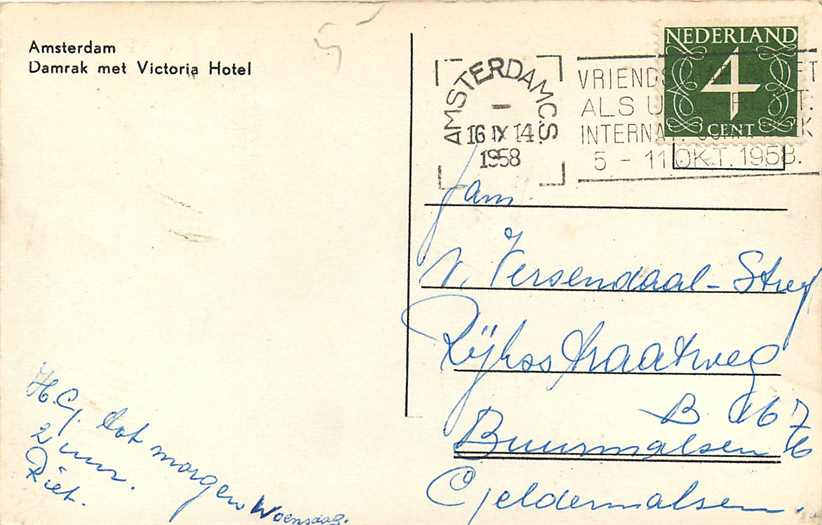 Amsterdam
Damrak met Victoria Hotel
AMSTERDAM C.S.
16 IX 14
1958
VRIENDS
ALS U
INTERNA
5 - 11 OKT. 1958.
NEDERLAND
4
CENT
Fam.
v. Versendaal-Stre
Rijksstraatweg
B 167
Buurmalsen
Geldermalsen.
H.G. tot morgen Woensdag.
2 uur.
Riet.